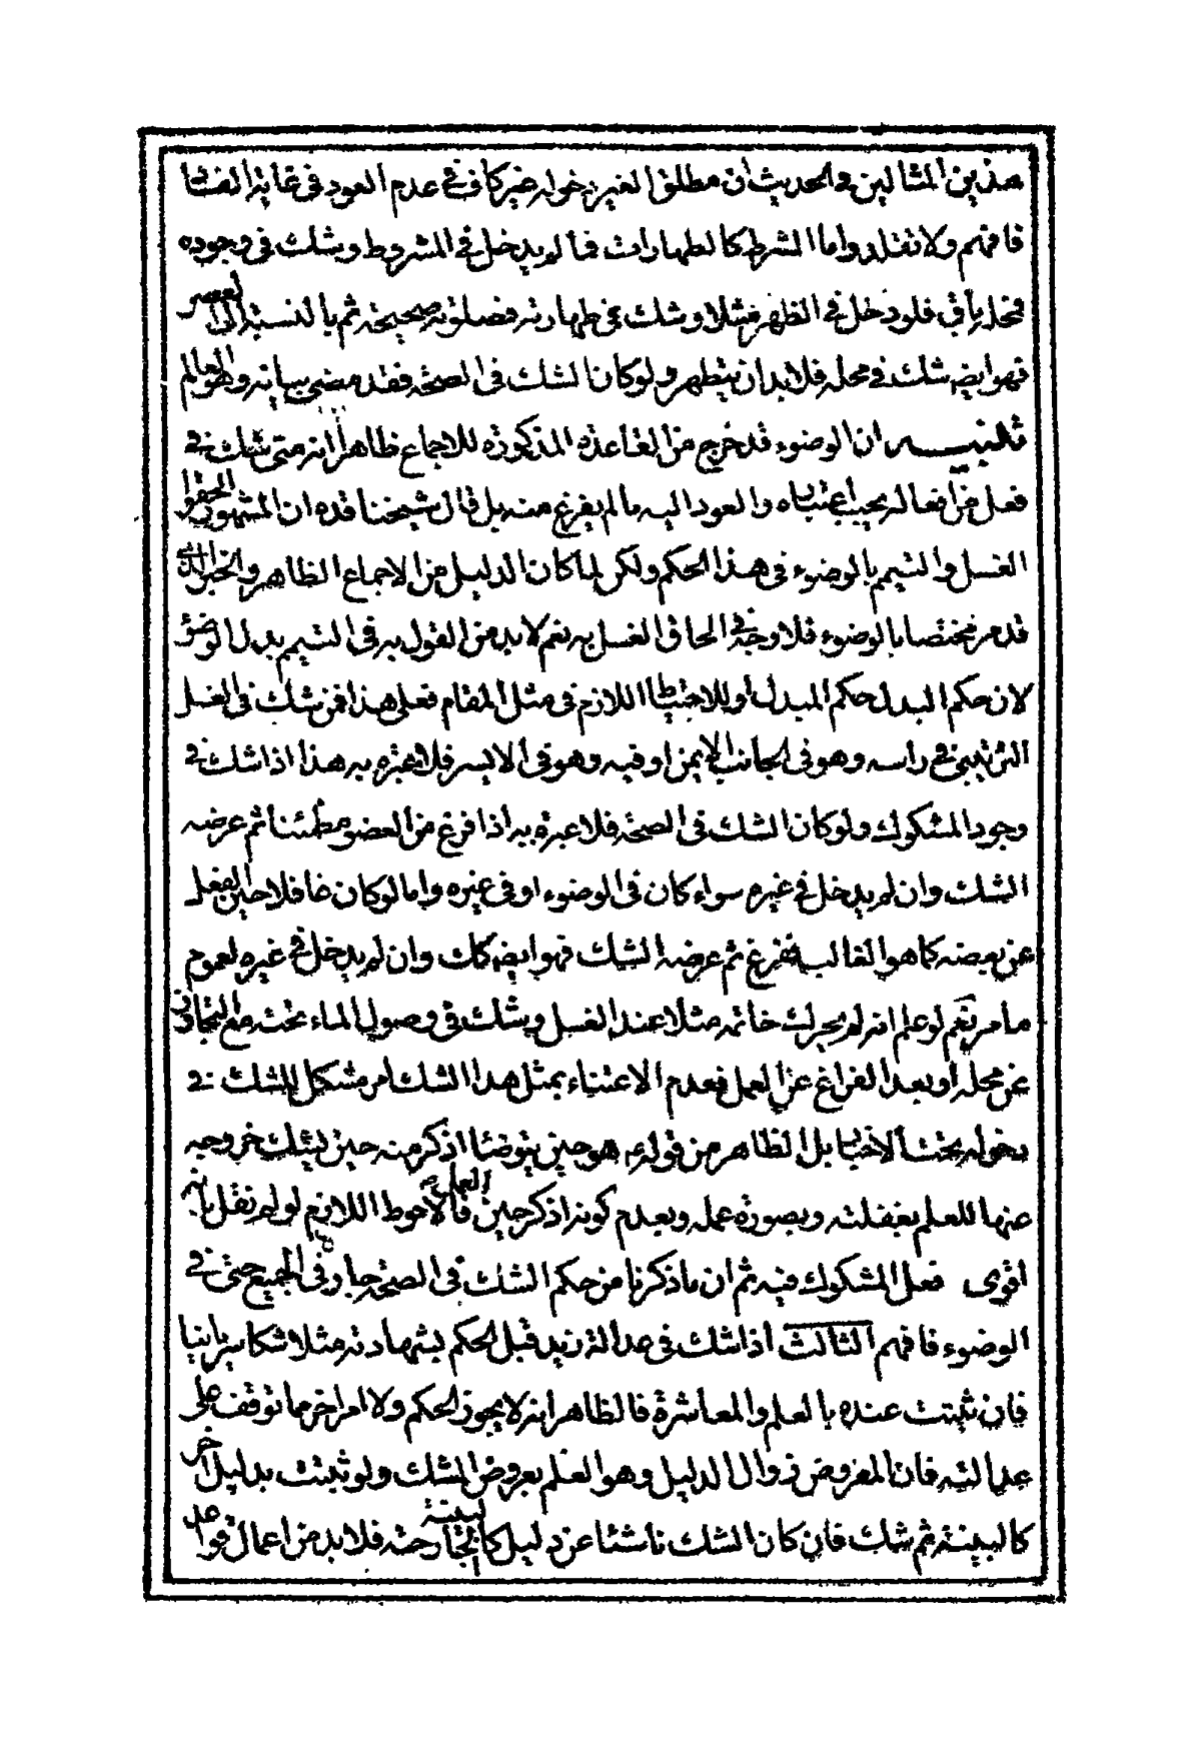 هذين المثالين في الحديث ان مطلق الغير دخوله غير كاف في عدم العود في
فافهم ولا تقلد واما الشرط كالطهارات فما لم يدخل في المشروط وشك في وجوده
فمحله باق فلو دخل في الظهر مثلا وشك في طهارته فصلوته صحيحة ثم بالنسبة الى العصر
فهو ايضه شك في محله فلا بد ان يتطهر ولو كان الشك في الصحة فقد مضى بيانه وهو العالم
تنبيه ان الوضوء قد خرج من القاعدة المذكورة للاجماع ظاهرا انه متى شك في
فعل من افعاله يجب اعتباره والعود اليه ما لم يفرغ منه بل قال شيخنا قده ان المشهور الحقوا
الغسل والتيمم بالوضوء في هذا الحكم ولكن لما كان الدليل من الاجماع الظاهر والخبر الذى
قد مر مختصا بالوضوء فلا وجه في الحاق الغسل به نعم لا بد من القول به في التيمم بدل الوضوء
لان حكم البدل حكم المبدل او للاحتياط اللازم في مثل المقام فعلى هذا فمن شك في الغسل
الترتيبى في راسه وهو في الجانب الايمن او فيه وهو في الايسر فلا عبرة به هذا اذا شك في
وجود المشكوك ولو كان الشك في الصحة فلا عبرة به اذا فرغ من العضو مطمئنا ثم عرضه
الشك وان لم يدخل في غيره سواء كان في الوضوء او في غيره واما لو كان غافلا حين الفعل
عن بعضه كما هو الغالب ففرغ ثم عرضه الشك فهو ايضه كك وان لم يدخل في غيره لعموم
ما مر نعم لو علم انه لم يحرك خاتمه مثلا عند الغسل وشك في وصول الماء تحته مع التجاوز
عن محله او بعد الفراغ عن العمل فعدم الاعتناء بمثل هذا الشك امر مشكل للشك في
دخوله تحت الاخبار بل الظاهر من قوله ع هو حين يتوضأ اذكر منه حين يشك خروجه
عنها للعلم بغفلته وبصورة عمله وبعدم كونه اذكر حين العمل فالاحوط اللازم لو لم نقل بانه
اقوى فعل المشكوك فيه ثم ان ما ذكرنا من حكم الشك في الصحة جار في الجميع حتى في
الوضوء فافهم الثالث اذا شك في عدالة زيد قبل الحكم بشهادته مثلا شكا
فان ثبتت عنده بالعلم والمعاشرة فالظاهر انه لا يجوز الحكم ولا امر اخر مما توقف على
عدالته فان المفروض زوال الدليل وهو العلم بعروض الشك ولو ثبتت بدليل اخر
كالبينة ثم شك فان كان الشك ناشئا عن دليل كالبينة الجارحة فلا بد من اعمال قواعد